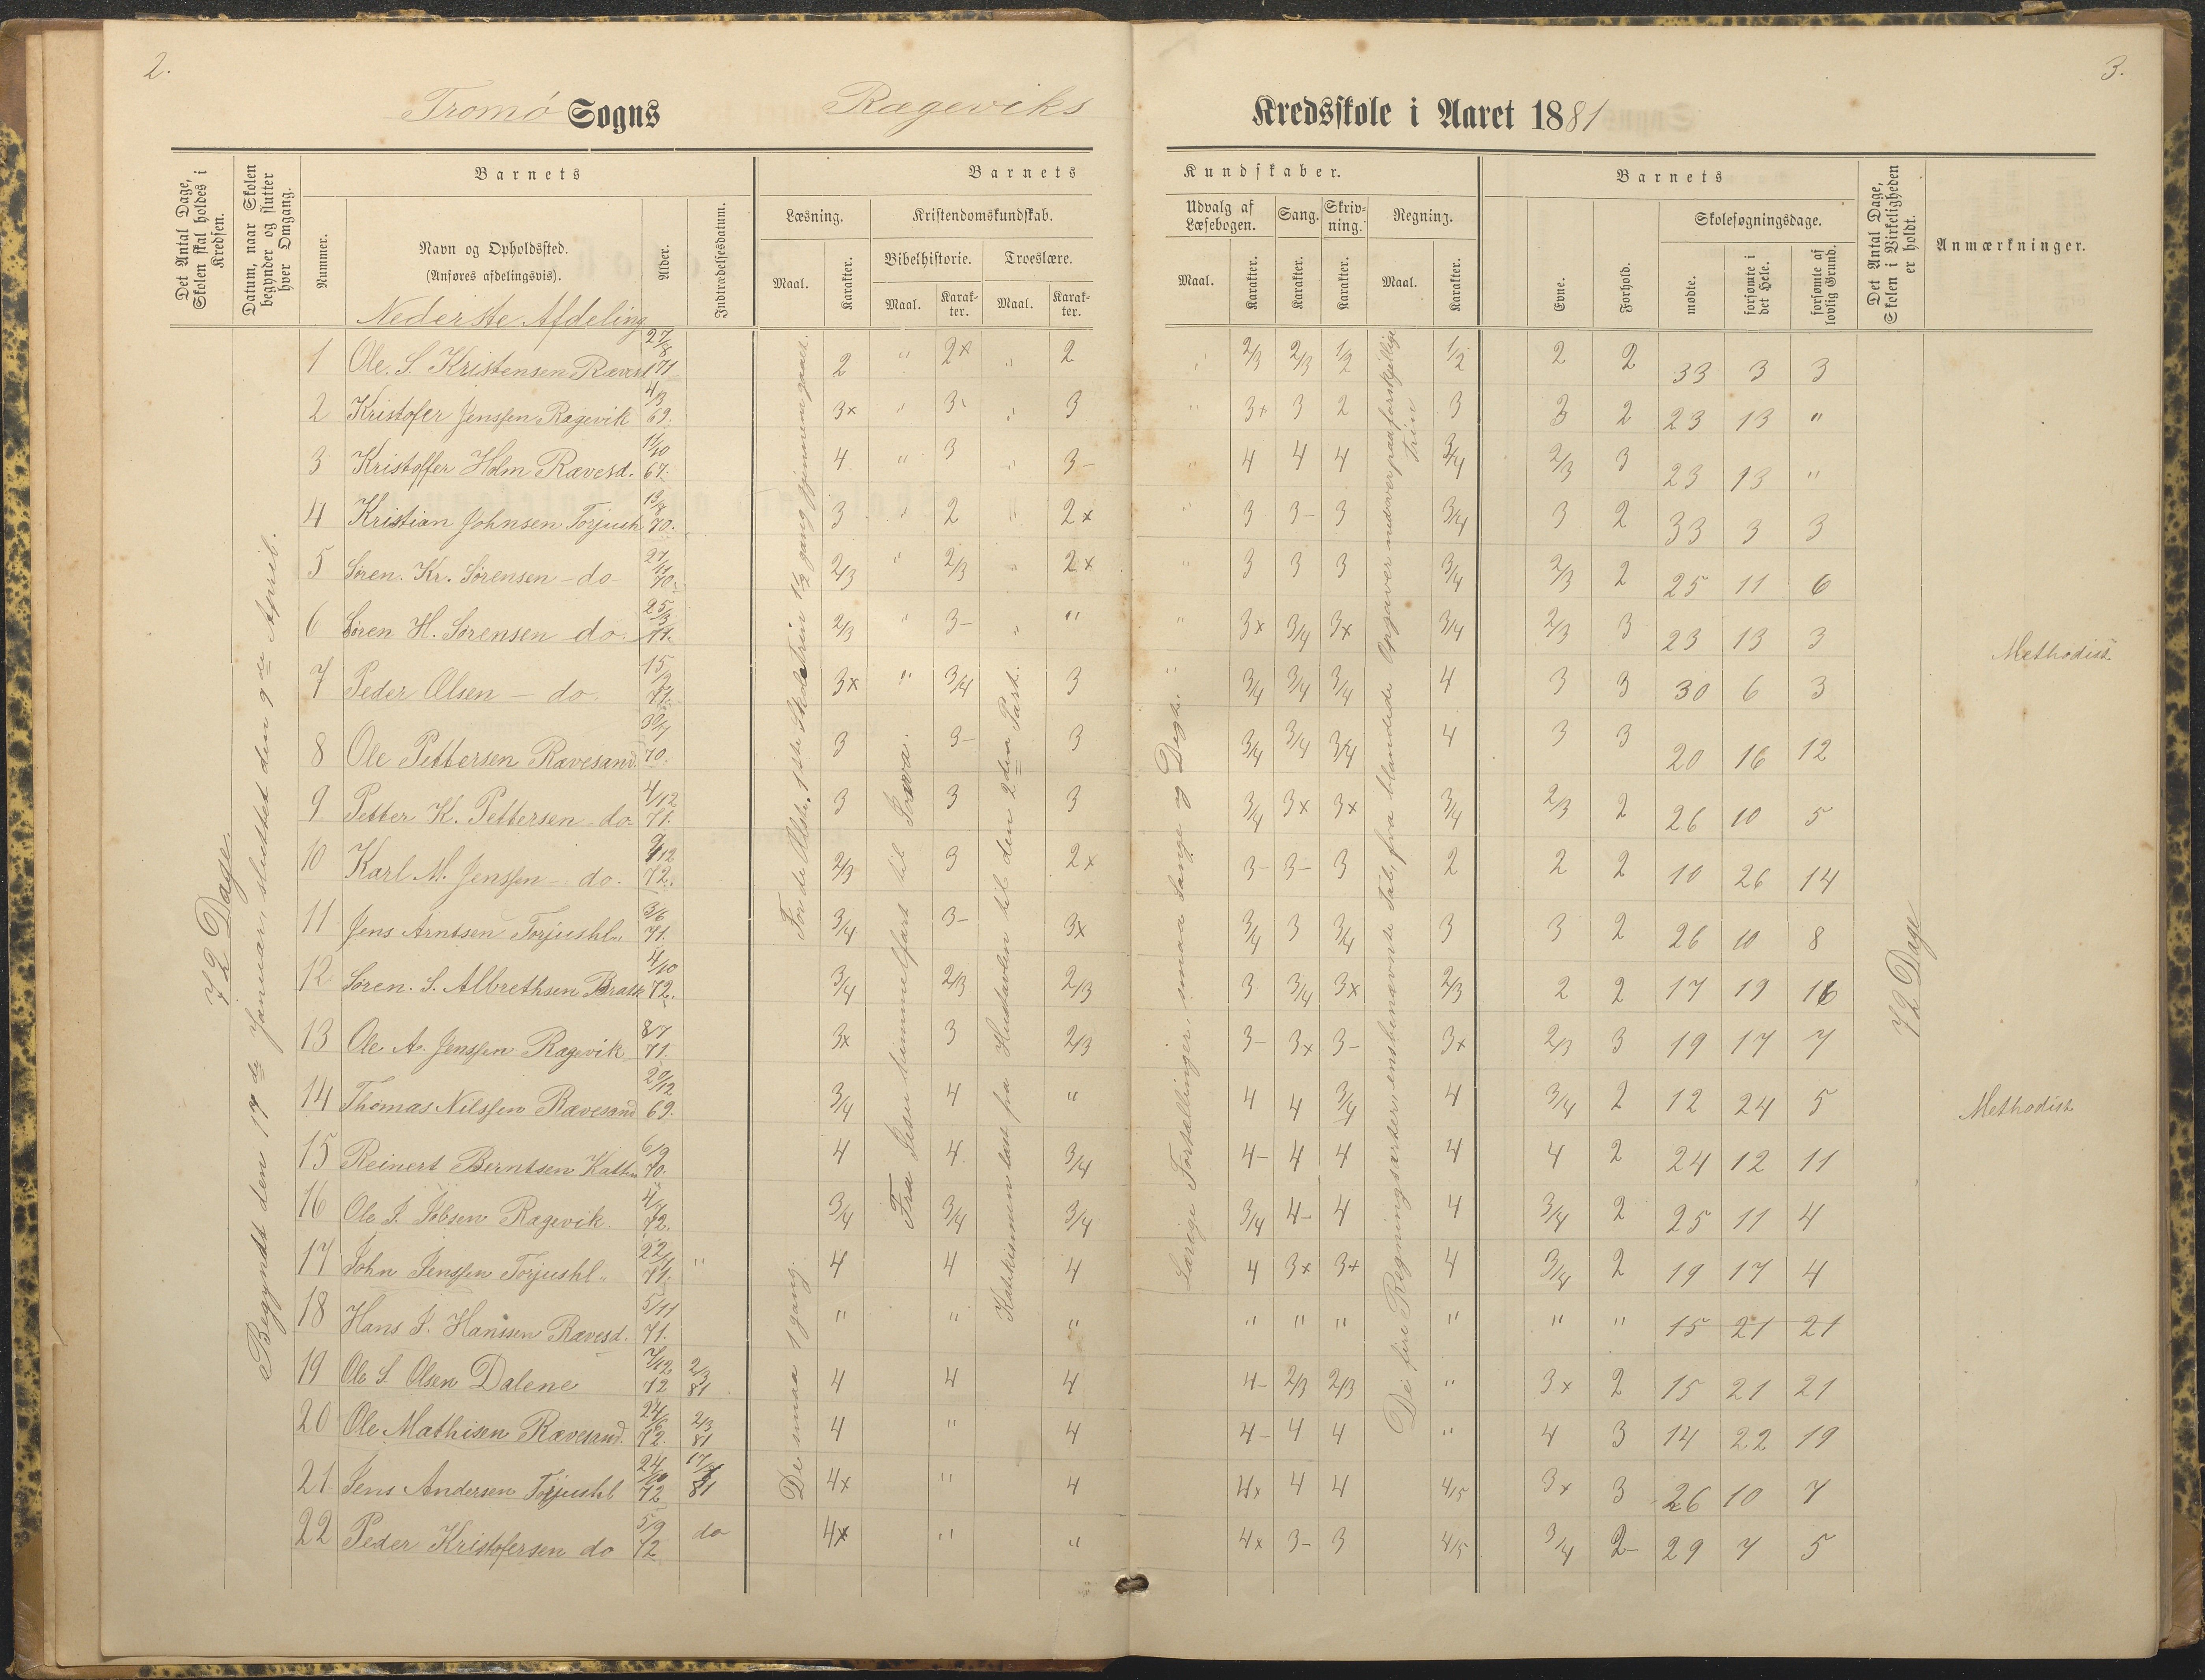 2.
3.
Tromø Sogns Rageviks Kredsskole i Aaret 1881
Det Antal Dage, Skolen skal holdes i Kredsen.
Datum, naar Skolen begynder og slutter hver Omgang.
Nummer.
Barnets
Navn og Opholdssted.
(Anføres afdelingsvis).
Alder.
Indtrædelsesdatum.
Barnets Kundskaber.
Læsning.
Maal.
Karakter.
Kristendomskundskab.
Bibelhistorie.
Maal.
Karakter.
Troeslære.
Maal.
Karakter.
Udvalg af Læsebogen.
Maal.
Karakter.
Sang.
Karakter.
Skrivning.
Karakter.
Regning.
Maal.
Karakter.
Barnets
Evne.
Forhold.
Skolesøgningsdage.
mødte.
forsømte i det Hele.
forsømte af lovlig Grund.
Det Antal Dage, Skolen i Virkeligheden er holdt.
Anmærkninger.
Nederste Afdeling
72 Dage
Begyndt den 17de Januar, sluttet den 9de April.
For de Ældste, 1ste Skoletrin 1½ gang gjennemgaaet.
De smaa 1 gang.
Fra Jesu himmelfart til
Katekismen lært fra Hustavlen til den 2den Part.
Lærige Fortællinger, smaa Sange og Digte.
De fire Regningsarter i ensbenævnte Tal, fra blandede Opgaver nedover paa forskjellige Trin
72 Dage
1 Ole. S. Kristensen Ravesd 27/8 71 2 " 2x " 2 " 2/3 2/3 1/2 1/2 2 2 33 3 3
2 Kristofer Jenssen Ragevik 4/3 69. 3x " 3- " 3 " 3x 3 2 3 3 2 23 13 "
3 Kristoffer Holm Ravesd. 11/10 67. 4 " 3 " 3- " 4 4 4 3/4 2/3 3 23 13 "
4 Kristian Johnsen Torjush 13/8 70. 3 " 2 " 2x " 3 3- 3 3/4 3 2 33 3 3
5 Søren. Kr. Sørensen - do 27/11 70. 2/3 " 2/3 " 2x " 3 3 3 3/4 2/3 2 25 11 6
6 Søren H. Sørensen do. 25/3 71. 2/3 " 3- " " " 3x 3/4 3x 3/4 2/3 3 23 13 3 Methodist
7 Peder Olsen - do. 15/2 71. 3x " 3/4 3 " 3/4 3/4 3/4 4 3 3 30 6 3
8 Ole Pettersen Ravesand. 30/7 70. 3 3- 3 3/4 3/4 3/4 4 3 3 20 16 12
9 Petter K. Pettersen do 4/12 71. 3 3 3 3/4 3x 3x 3/4 2/3 2 26 10 5
10 Karl M. Jenssen do. 9/12 72. 2/3 3 2x 3- 3- 3 2 2 2 10 26 14
11 Jens Arntsen Torjushl. 3/6 71. 3/4 3- 3x 3/4 3 3/4 3 3 2 26 10 8
12 Søren. S. Albrethsen Bratk 4/10 72. 3/4 2/3 2/3 3 3/4 3x 2/3 2 2 17 19 16
13 Ole A. Jenssen Ragevik 8/7 71. 3x 3 2/3 3- 3x 3- 3x 2/3 3 19 17 7
14 Thomas Nilssen Ravesand 29/12 69. 3/4 4 " 4 4 3/4 4 3/4 2 12 24 5 Methodist
15 Reinert Berntsen Katt 6/9 70. 4 4 3/4 4- 4 4 4 4 2 24 12 11
16 Ole J. Jobsen Ragevik 4/1 72. 3/4 3/4 3/4 3/4 4- 4 4 3/4 2 25 11 4
17 John Jenssen Torjushl. 22/4 71. " 4 4 4 4 3x 3x 4 3/4 2 19 17 4
18 Hans S. Hanssen Ravesd. 5/11 71. " " " " " " " " " 15 21 21
19 Ole S. Olsen Dalene 7/12 72 2/3 81 4 4 4 4- 2/3 2/3 " 3x 2 15 21 21
20 Ole Mathisen Ravesand. 24/6 72. 2/3 81 4 " 4 4- 4 4 " 4 3 14 22 19
21 Jens Andersen Torjushl 24/10 72 17/1 81 4x " 4 4x 4 4 4/5 3x 3 26 10 7
22 Peder Kristofersen do 5/9 72 do 4x " " 4x 3- 3 4/5 3/4 2- 29 7 5